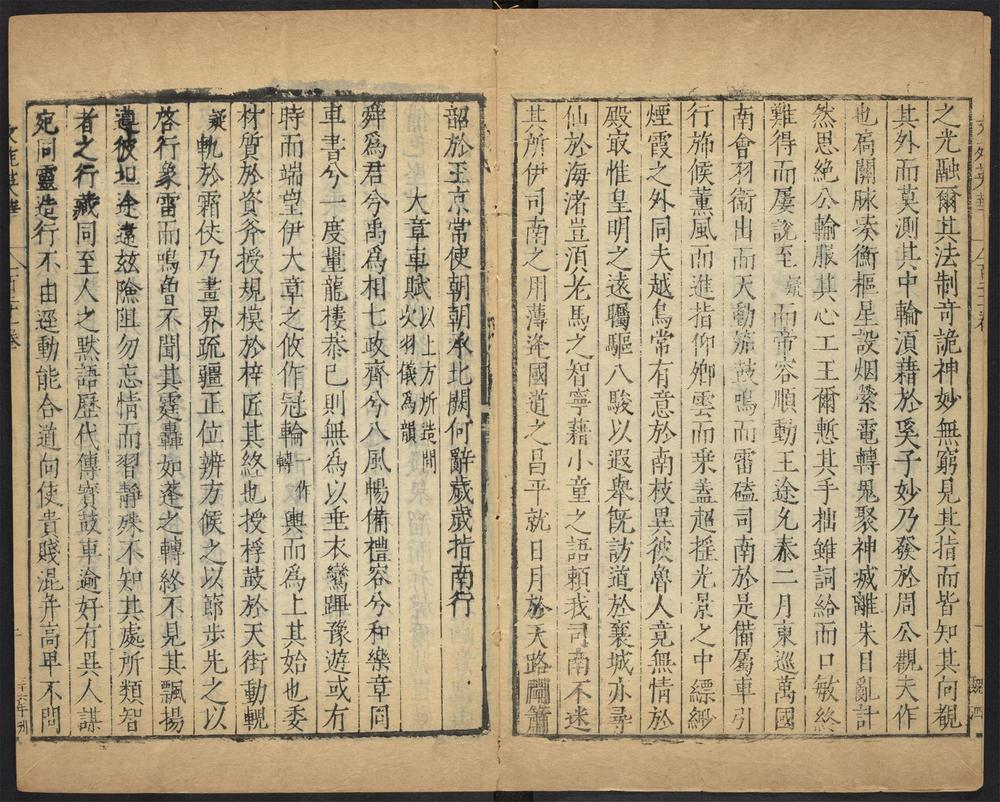 之光融爾其法制奇詭神妙無窮見其指而皆知其向覩
其外而莫測其中輪湏藉於奚子妙乃發於周公觀夫作
也扃關脉湊衡樞星設烟縈電轉鬼聚神滅離朱目亂計
然思絶公輸服其心工王爾慙其手拙雖詞給而口敏終
難得而屢說至疑而帝容順動王途允泰二月東巡萬國
南會羽衛出而天動笳鼓鳴而雷磕司南於是備屬車引
行斾候薫風而進指仰卿雲而乗蓋超摇光景之中縹緲
煙霞之外同夫越鳥常有意於南枝異彼魯人竟無情於
殿㝡惟皇明之遠矚驅八駿以遐舉旣訪道於襄城亦尋
仙於海渚豈湏老馬之智寧藉小童之語頼我司南不迷
其所伊司南之用薄逄國道之昌平就日月於天路聞簫
韶於王京常使朝朝承北闕何辭歲歲指南行
大章車賦 以上方所造間火羽儀為韻
舜爲君兮禹爲相七政齊兮八風暢備禮容兮和樂章同
車書兮一度量龍樓恭己則無爲以垂衣鸞蹕豫遊或有
時而端望伊大章之攸作冠輪一作轉輿而爲上其始也委
材質於資斧授規模於梓匠其終也授桴鼓於天街動輗
疑軌於霜仗乃畫界疏疆正位辨方候之以節步先之以
啓行象雷而鳴魯不聞其霆轟如蓬之轉終不見其飄揚
遵彼坦途違兹險阻勿忘情而習靜殊不知其處所類智
者之行藏同至人之黙語歷代傳寳鼓車逾好有異人謀
宛同靈造行不由逕動能合道向使貴賤混并高卑不問